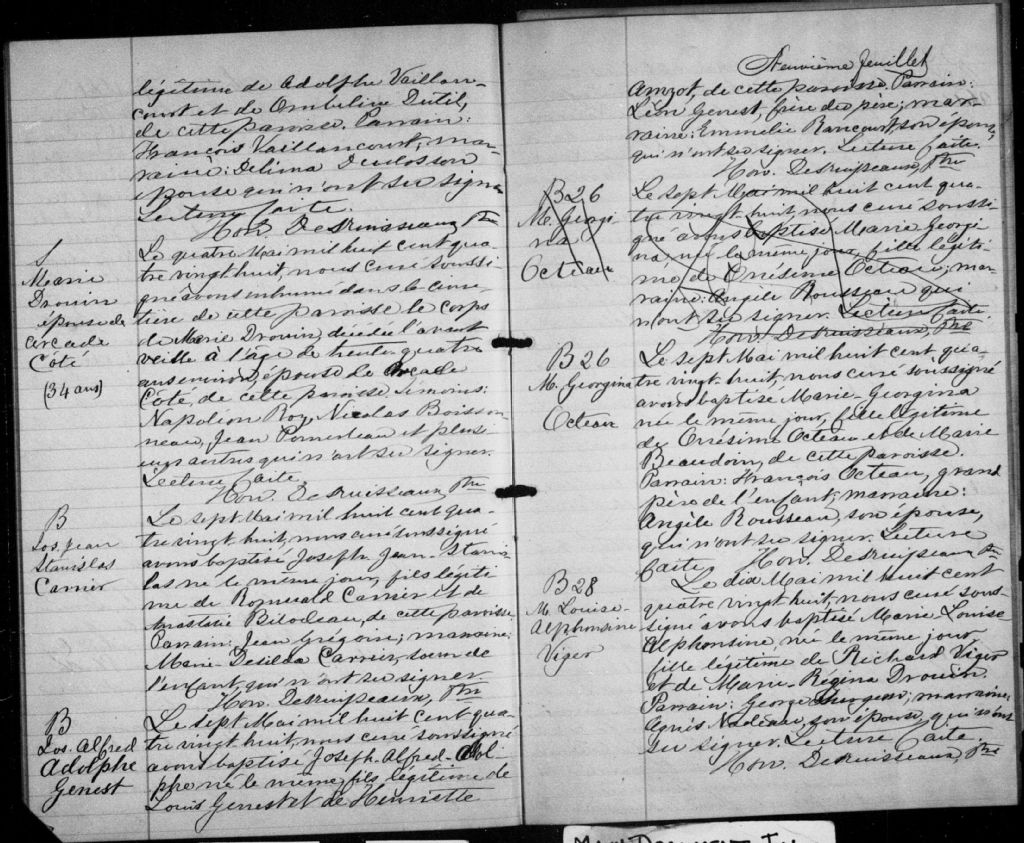 légitime de Adolphe Vaillan-
court et de Ombeline Dutil,
de cette paroisse. Parrain:
François Vaillancourt, mar-
raine: Délima Duclos son
épouse qui n'ont su signer
Lecture faite.
Hon. Desruisseaux, Ptre
S
Marie
Drouin
épouse de
Arcade
Côté
(34 ans)
Le quatre Mai mil huit cent qua-
tre vingt huit, nous curé soussi-
gné avons inhumé dans le cime-
tière de cette paroisse le corps
de Marie Drouin, décédée l'avant
veille à l'âge de trente quatre
ans environ, épouse de Arcade
Côté, de cette paroisse. Témoins:
Napoléon Roy, Nicolas Boisson-
neau, Jean Pomerleau et plusi
eurs autres qui n'ont su signer.
Lecture faite.
Hon. Desruisseaux, Ptre
B
Jos. Jean
Stanislas
Carrier
Le sept Mai mil huit cent qua-
tre vingt huit, nous curé soussigné
avons baptisé Joseph Jean-Stanis
las né le même jour, fils légiti
me de Romuald Carrier et de
Anastasie Bilodeau, de cette paroisse
Parrain: Jean Grégoire; marraine:
Marie Desilda Carrier, soeur de
l'enfant, qui n'ont su signer
Hon. Desruisseaux, Ptre
B
Jos. Alfred
Adolphe
Genest
Le sept Mai mil huit cent qua-
tre vingt huit, nous curé soussigné
avons baptisé Joseph Alfred-Adol
phe né le même, fils légitime de
Louis Genest et de Henriette
Neuvième feuillet
Amyot, de cette paroisse. Parrain:
Léon Genest, frère du père; mar-
raine: Emmélie Rancourt, son épouse,
qui n'ont su signer. Lecture faite.
Hon. Desruisseaux, Ptre
B26
M. Georgi
na
Octeau
Le sept Mai mil huit cent qua-
tre vingt huit, nous curé soussi-
gné avons baptisé Marie Georgi
na née le même jour, fille légiti-
me de Onésime Octeau; mar-
raine: Angèle Rousseau qui
n'ont su signer. Lecture faite.
Hon. Desruisseaux, Ptre
B26
M. Georgina
Octeau
Le sept Mai mil huit cent qua-
tre vingt-huit, nous curé soussigné
avons baptisé Marie-Georgina
née le même jour, fille légitime
de Onésime Octeau et de Marie
Beaudoin, de cette paroisse.
Parrain: François Octeau, grand
père de l'enfant; marraine:
Angèle Rousseau, son épouse,
qui n'ont su signer. Lecture
faite. Hon. Desruisseaux Ptre
B28
M. Louise-
Alphonsine
Viger
Le dix Mai mil huit cent
quatre vingt huit, nous curé sous-
signé avons baptisé Marie Louise
Alphonsine, née le même jour,
fille légitime de Richard Viger
et de Marie-Regina Drouin.
Parrain: George marraine:
Agnès Nadeau, son épouse, qui n'ont
su signer. Lecture faite.
Hon. Desruisseaux, Ptre